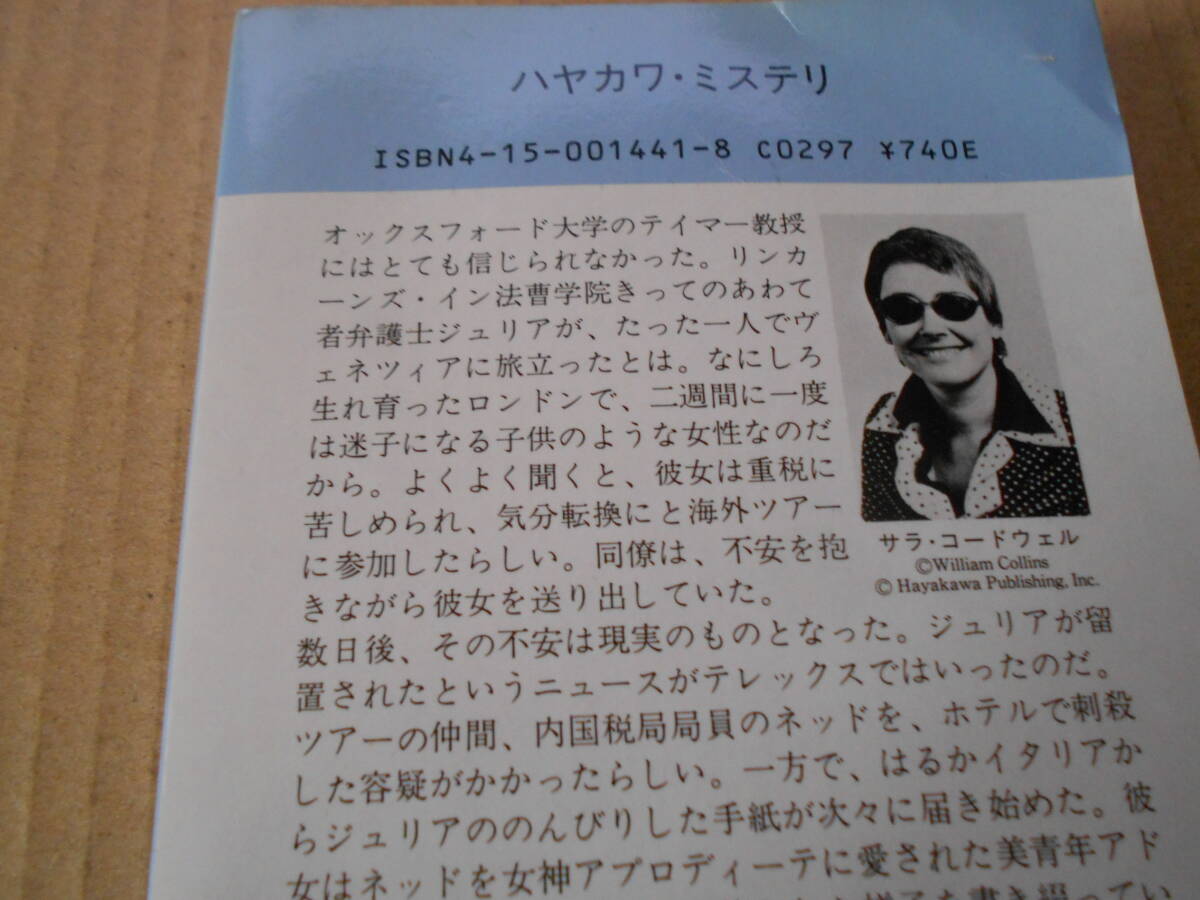 ハヤカワ・ミステリ
ISBN4-15-001441-8 C0297 ¥740E
オックスフォード大学のテイマー教授
にはとても信じられなかった。リンカ
ーンズ・イン法曹学院きってのあわて
者弁護士ジュリアが、たった一人でヴ
ェネツィアに旅立ったとは。なにしろ
生れ育ったロンドンで、二週間に一度
は迷子になる子供のような女性なのだ
から。よくよく聞くと、彼女は重税に
苦しめられ、気分転換にと海外ツアー
に参加したらしい。同僚は、不安を抱
きながら彼女を送り出していた。
サラ・コードウェル
©William Collins
© Hayakawa Publishing, Inc.
数日後、その不安は現実のものとなった。ジュリアが留
置されたというニュースがテレックスではいったのだ。
ツアーの仲間、内国税局局員のネッドを、ホテルで刺殺
した容疑がかかったらしい。一方で、はるかイタリアか
らジュリアののんびりした手紙が次々に届き始めた。彼
女はネッドを女神アプロディーテに愛された美青年アド
様子を書き綴ってい